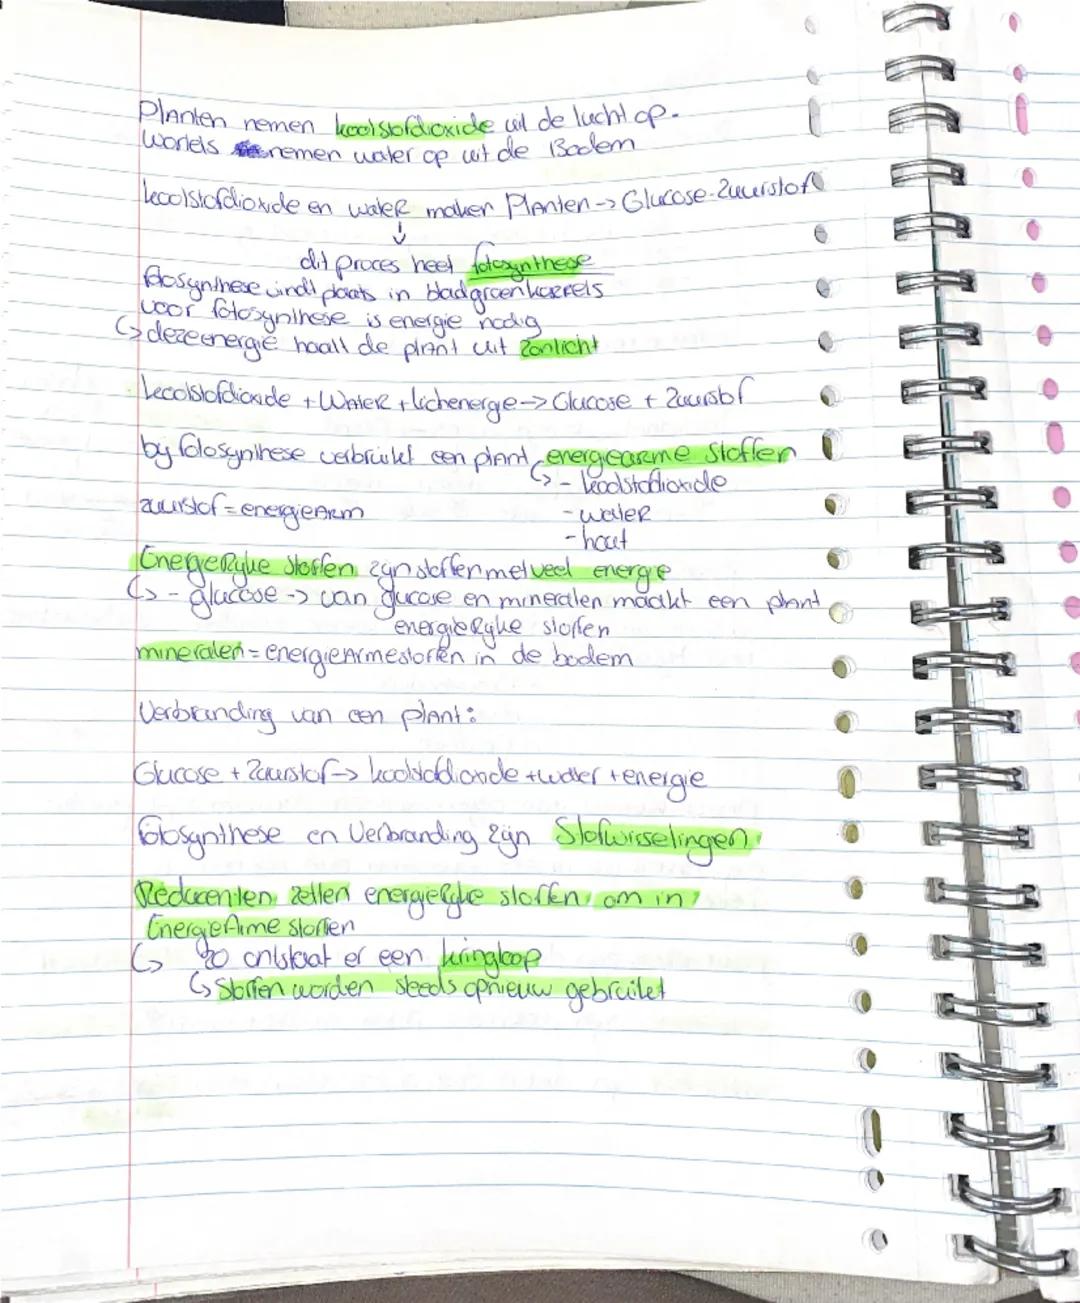 Planten nemen koolstofdioxide uit de lucht op.
Wortels nemen water op uit de Bodem
koolstofdioxide en wateR maken Planten -> Glucose-Zuurstof
↓
dit proces heet fotosynthese
fotosynthese vindt plaats in bladgroenkorrels
voor fotosynthese is energie nodig
↳ deze energie haalt de plant uit zonlicht
koolstofdioxide + WateR + lichenergie -> Glucose + Zuurstof
bij fotosynthese verbruikt een plant energiearme Stoffen
↳ - koolstofdioxide
zuurstof = energieArm
- wateR
- hout
EnergieRijke stoffen zijn stoffen met veel energie
↳ - glucose -> van glucose en mineralen maakt een plant
energieRijke stoffen
mineralen = energieArmestoffen in de bodem
Verbranding van een plant:
Glucose + Zuurstof -> koolstofdioxide + water + energie
fotosynthese en Verbranding zijn Stofwisselingen.
Reducenten zetten energieRijke stoffen om in
EnergieArme stoffen
↳ zo ontstaat er een kringloop
↳ Stoffen worden steeds opnieuw gebruikt